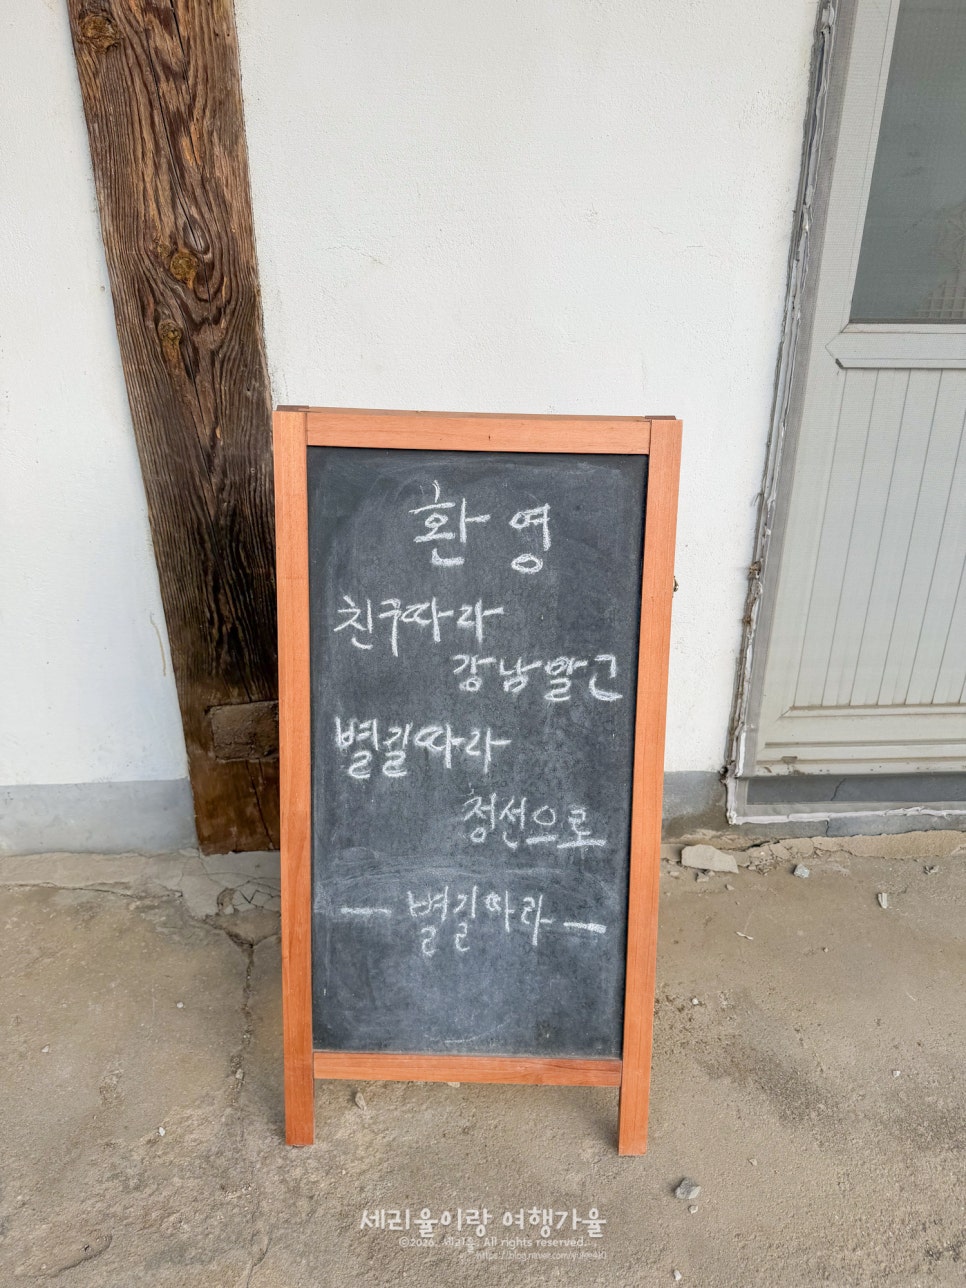 환영
친구따라
강남말고
별길따라
정선으로
- 별길따라 -
세리율이랑 여행가율
©2026. 세리율. All rights reserved.